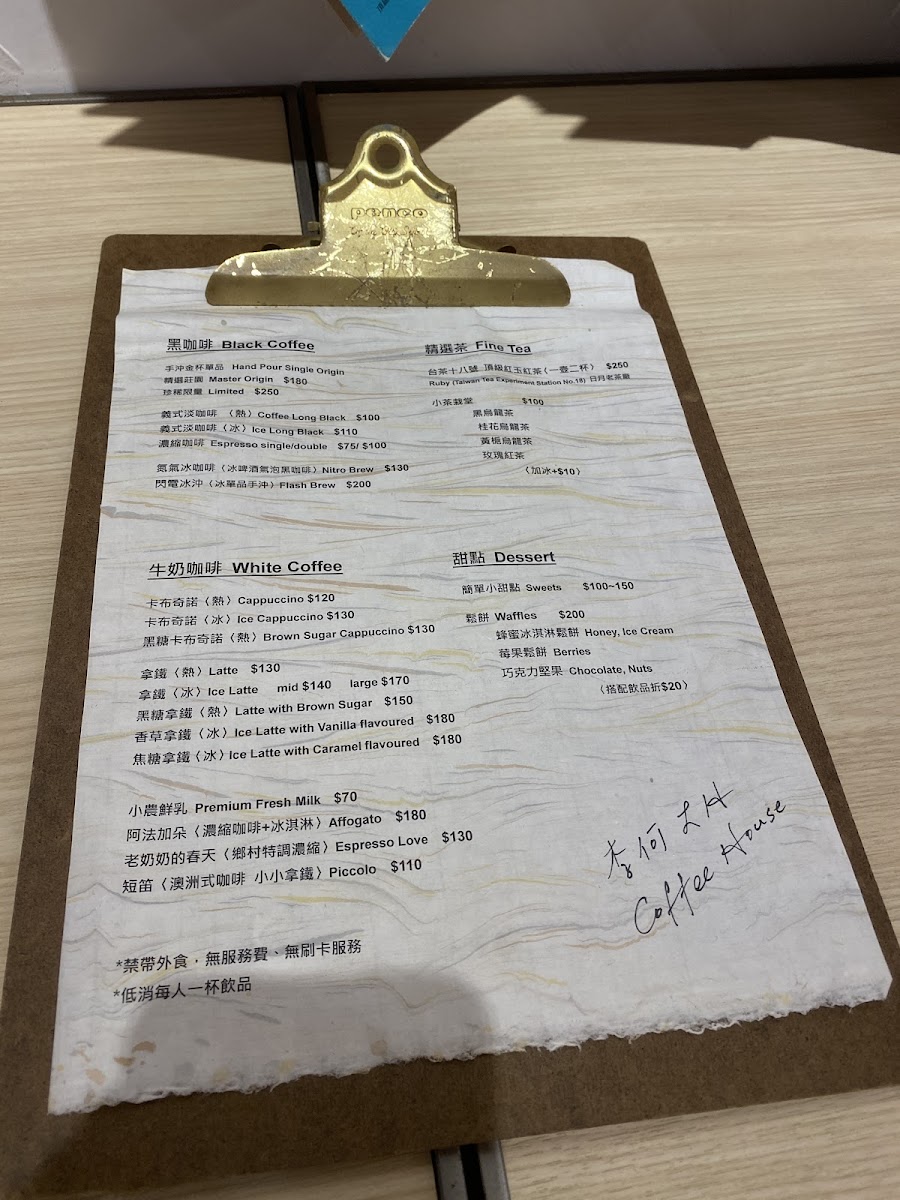 penco
黑咖啡 Black Coffee
手沖金杯單品 Hand Pour Single Origin
精選莊園 Master Origin $180
珍稀限量 Limited $250
義式淡咖啡 〈熱〉Coffee Long Black $100
義式淡咖啡〈冰〉Ice Long Black $110
濃縮咖啡 Espresso single/double $75/ $100
氮氣冰咖啡〈冰啤酒氣泡黑咖啡〉Nitro Brew $130
閃電冰沖〈冰單品手沖〉Flash Brew $200
牛奶咖啡 White Coffee
卡布奇諾〈熱〉Cappuccino $120
卡布奇諾〈冰〉Ice Cappuccino $130
黑糖卡布奇諾〈熱〉Brown Sugar Cappuccino $130
拿鐵〈熱〉Latte $130
拿鐵〈冰〉Ice Latte mid $140 large $170
黑糖拿鐵〈熱〉Latte with Brown Sugar $150
香草拿鐵〈冰〉Ice Latte with Vanilla flavoured $180
焦糖拿鐵〈冰〉Ice Latte with Caramel flavoured $180
小農鮮乳 Premium Fresh Milk $70
阿法加朵〈濃縮咖啡+冰淇淋〉Affogato $180
老奶奶的春天〈鄉村特調濃縮〉Espresso Love $130
短笛〈澳洲式咖啡 小小拿鐵〉Piccolo $110
*禁帶外食，無服務費、無刷卡服務
*低消每人一杯飲品
精選茶 Fine Tea
台茶十八號 頂級紅玉紅茶〈一壺二杯〉 $250
Ruby (Taiwan Tea Experiment Station No.18) 日月老茶廠
小茶栽堂 $100
黑烏龍茶
桂花烏龍茶
黃梔烏龍茶
玫瑰紅茶
〈加冰+$10〉
甜點 Dessert
簡單小甜點 Sweets $100~150
鬆餅 Waffles $200
蜂蜜冰淇淋鬆餅 Honey, Ice Cream
莓果鬆餅 Berries
巧克力堅果 Chocolate, Nuts
〈搭配飲品折$20〉
李何
Coffee House